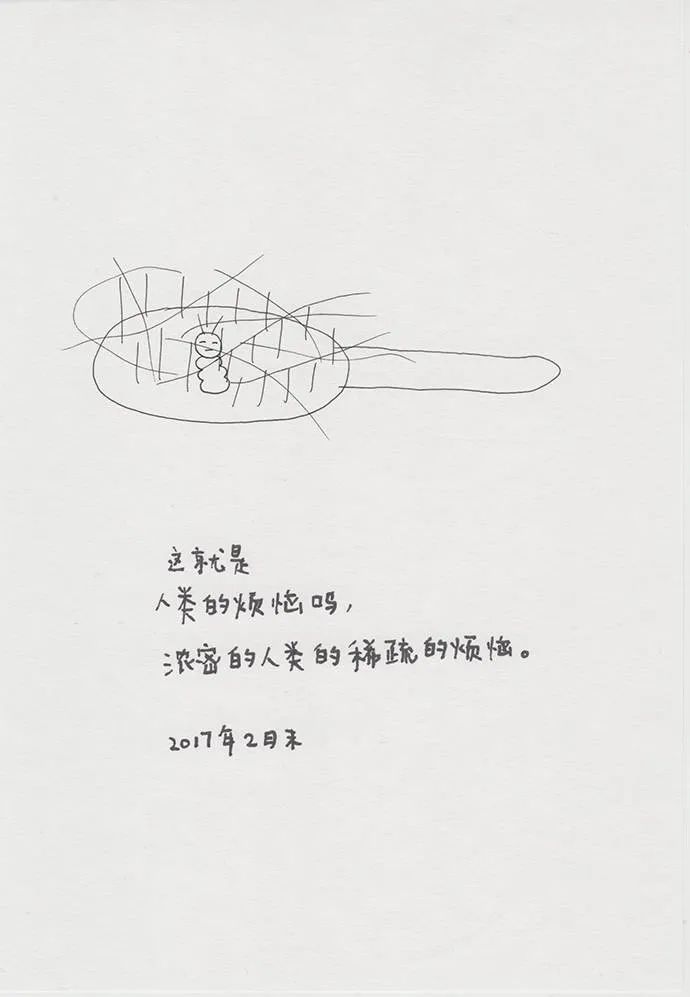 这就是
人类的烦恼吗，
浓密的人类的稀疏的烦恼。
2017年2月末